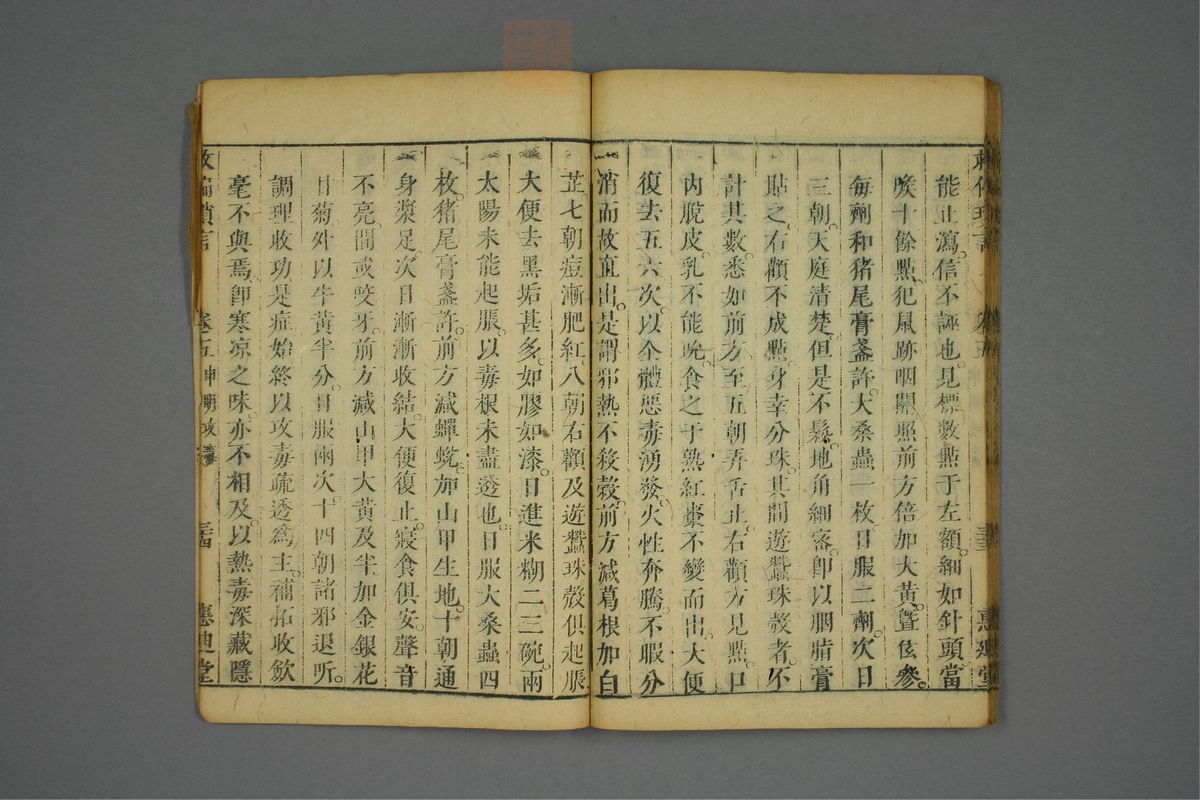 能止瀉。信不誣也。見標數點于左額。細如針頭。當
喉十餘點。犯鼠跡咽關。照前方倍加大黃。曁伭參。
每劑和猪尾膏盞許。大桑蟲一枚。日服二劑。次日
三朝。天庭清楚。但是不鬆。地角細密。卽以胭脂膏
貼之。右顴不成點。身幸分珠。其間遊蠶珠殼者。不
計其數。悉如前方。至五朝弄舌止。右顴方見點。口
內脫皮。乳不能吮。食之于熟紅棗不變而出。大便
復去五六次。以全體惡毒湧發。火性奔騰。不暇分
消而故直出。是謂邪熱不殺穀。前方減葛根加白
芷七朝痘漸肥紅八朝右顴及遊蠶珠殼俱起脹
大便去黑垢甚多。如膠如漆。日進米糊二三碗。兩
太陽未能起脹。以毒根未盡透也。日服大桑蟲四
枚。猪尾膏盞許。前方減蟬蛻。加山甲生地。十朝通
身漿足。次日漸漸收結。大便復止。寢食俱安。聲音
不亮。間或咬牙。前方減山甲大黃及半。加金銀花
甘菊。外以牛黃半分。日服兩次。十四朝諸邪退聽。
調理收功。是症始終以攻毒疏透爲主。補拓收斂
毫不與焉。卽寒凉之味。亦不相及。以熱毒深藏隱
救偏瑣言 卷五 神明攻 三四 惠迪堂